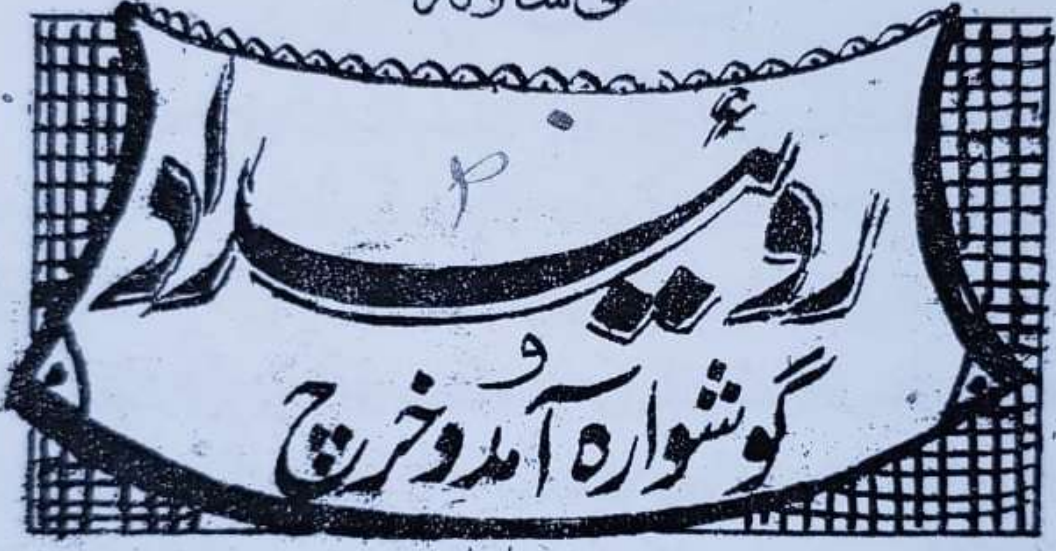 روئیداد
و
گوشوارہ آمد و خرچ